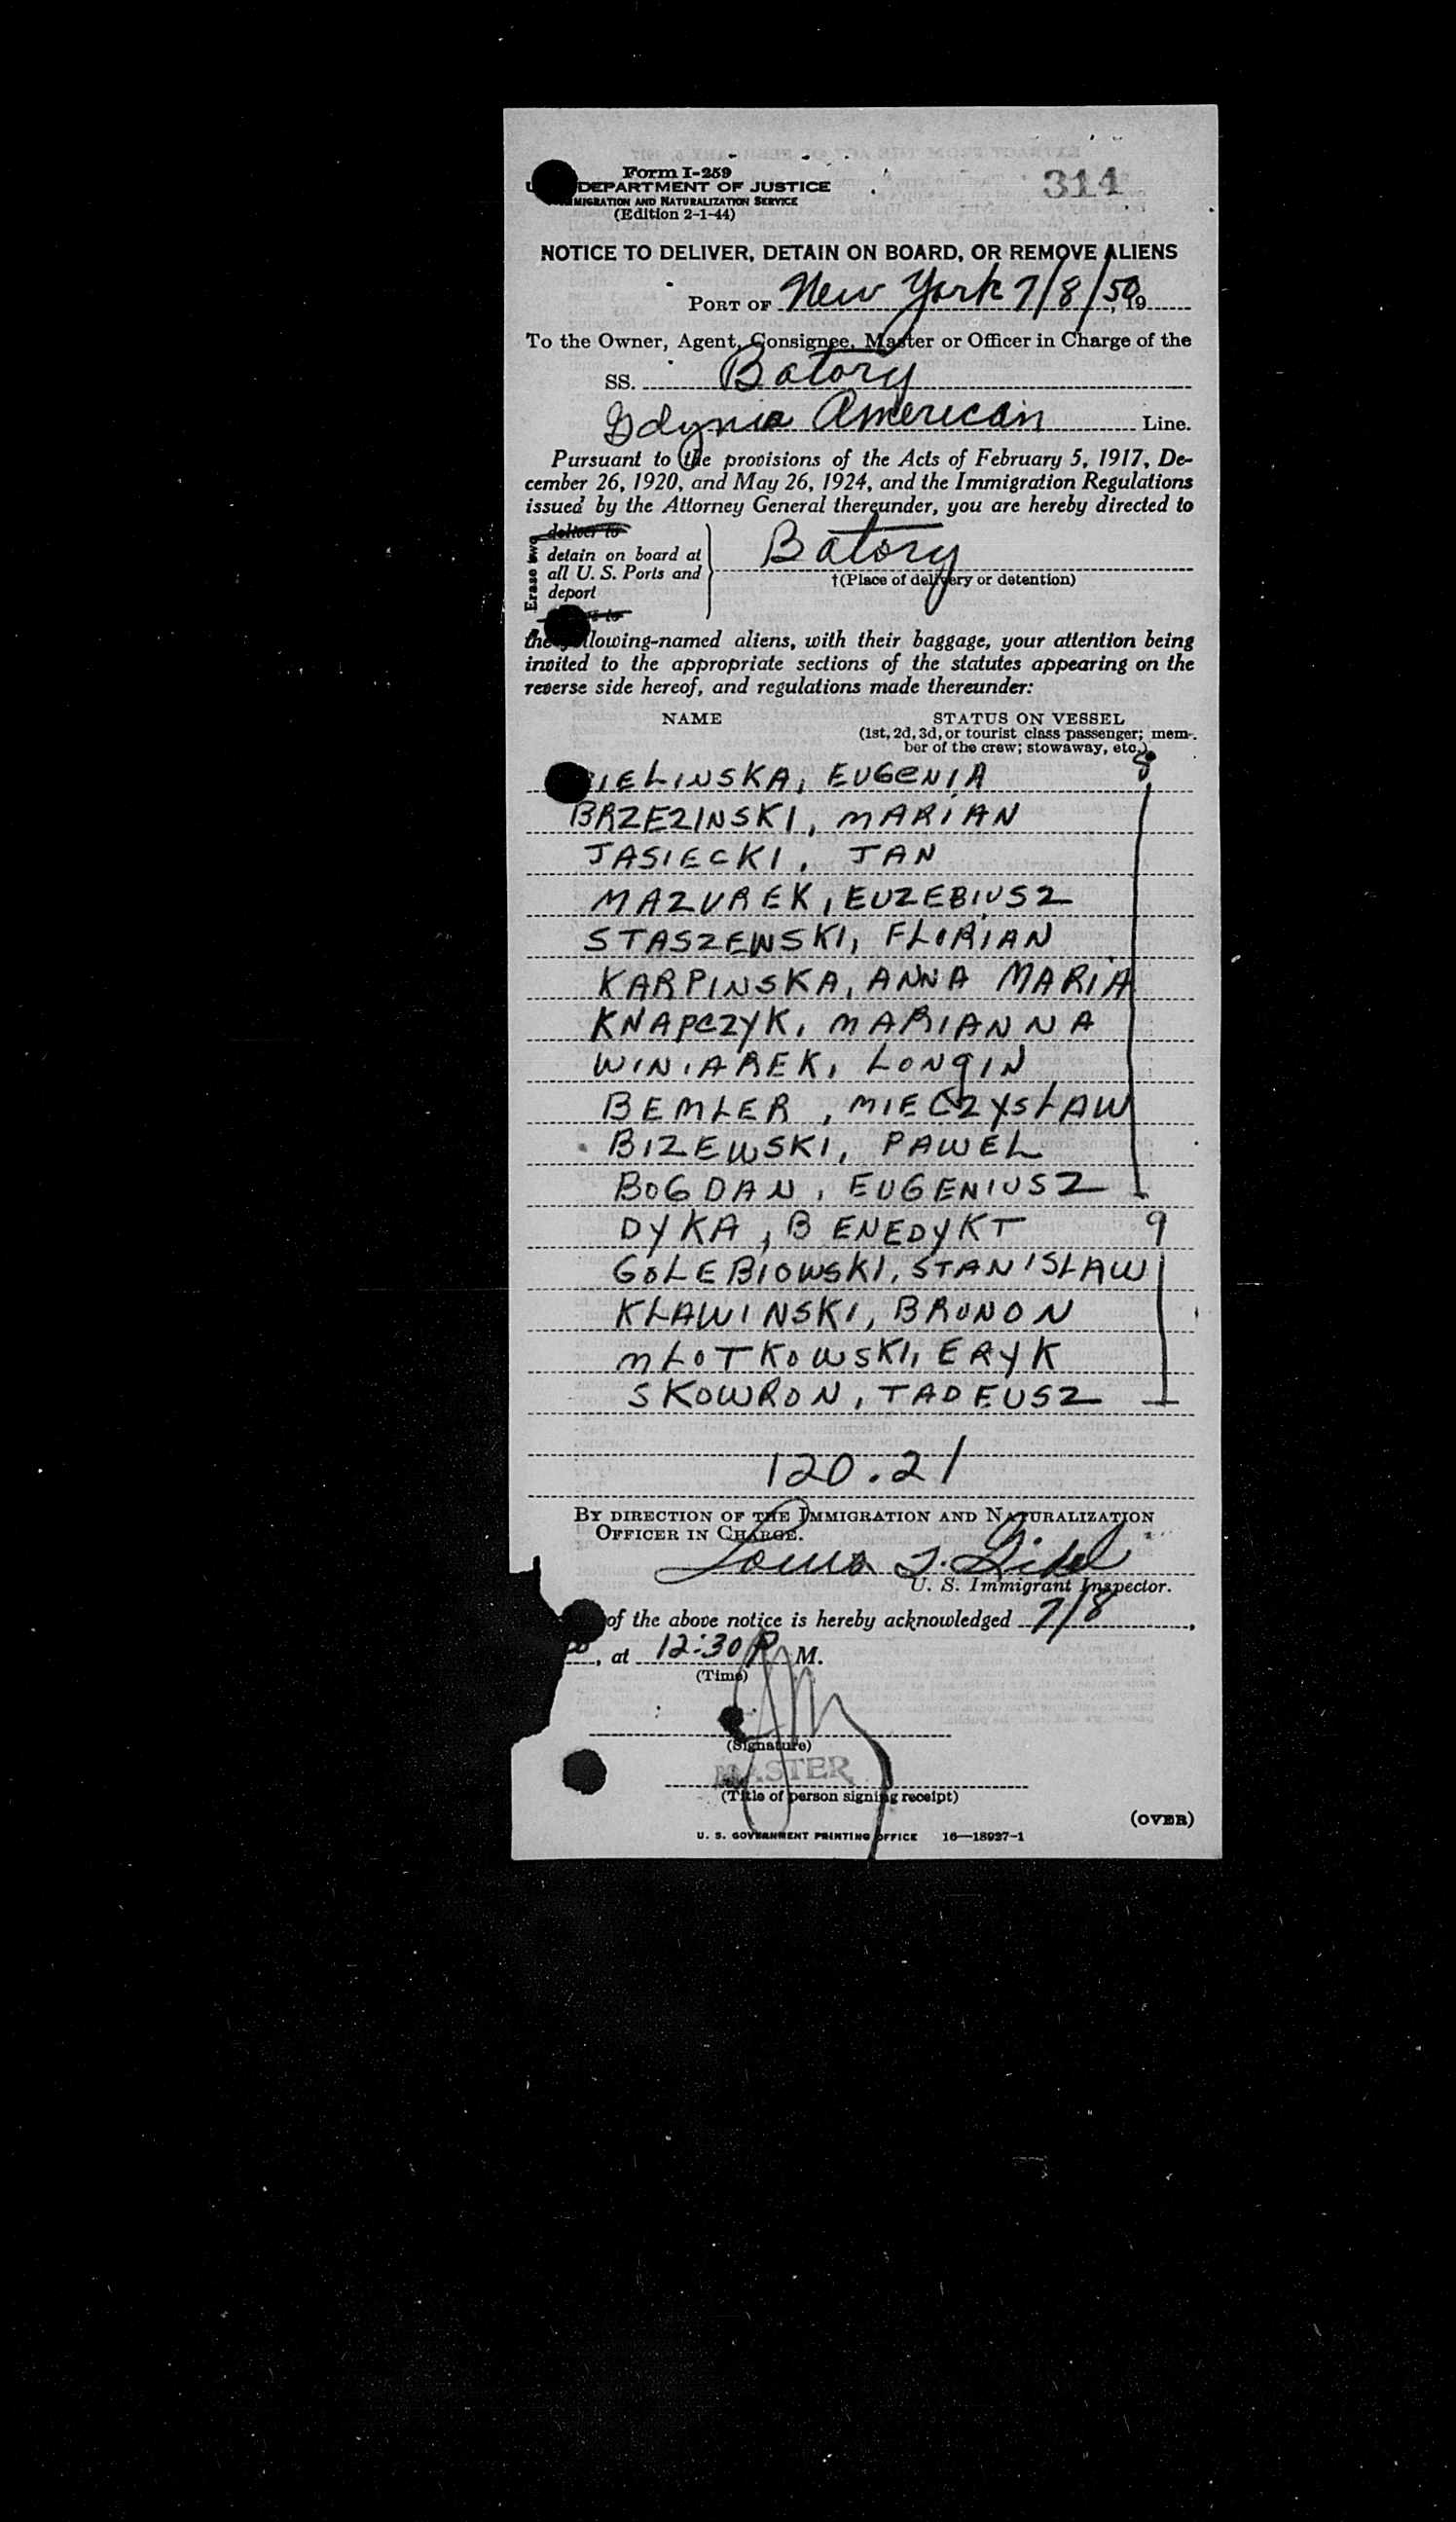 Form I-259
314
DEPARTMENT OF JUSTICE
MIGRATION AND NATURALIZATION SERVICE
(Edition 2-1-44)
NOTICE TO DELIVER, DETAIN ON BOARD, OR REMOVE ALIENS
PORT OF New York 7/8/50, 19
To the Owner, Agent, Consignee, Master or Officer in Charge of the
SS. Batory
Gdynia American Line.
Pursuant to the provisions of the Acts of February 5, 1917, De-
cember 26, 1920, and May 26, 1924, and the Immigration Regulations
issued by the Attorney General thereunder, you are hereby directed to
Erase two
deliver to
detain on board at
all U. S. Ports and
deport
to
Batory
†(Place of delivery or detention)
the llowing-named aliens, with their baggage, your attention being
invited to the appropriate sections of the statutes appearing on the
reverse side hereof, and regulations made thereunder:
NAME
STATUS ON VESSEL
(1st, 2d, 3d, or tourist class passenger; mem-
ber of the crew; stowaway, etc.)
8
IELINSKA, EUGENIA
BRZEZINSKI, MARIAN
JASIECKI, JAN
MAZUREK, EUZEBIUSZ
STASZEWSKI, FLORIAN
KARPINSKA, ANNA MARIA
KNAPCZYK, MARIANNA
WINIAREK, LONGIN
BEMLER, MIECZYSLAW
BIZEWSKI, PAWEL
BOGDAN, EUGENIUSZ
DYKA, BENEDYKT 9
GOLEBIOWSKI, STANISLAW
KLAWINSKI, BRUNON
MLOTKOWSKI, ERYK
SKOWRON, TADEUSZ
120.21
BY DIRECTION OF THE IMMIGRATION AND NATURALIZATION
OFFICER IN CHARGE.
U. S. Immigrant Inspector.
of the above notice is hereby acknowledged 7/8,
, at 12:30 P M.
(Time)
(Signature)
MASTER
(Title of person signing receipt)
(OVER)
U. S. GOVERNMENT PRINTING OFFICE 16—18927-1